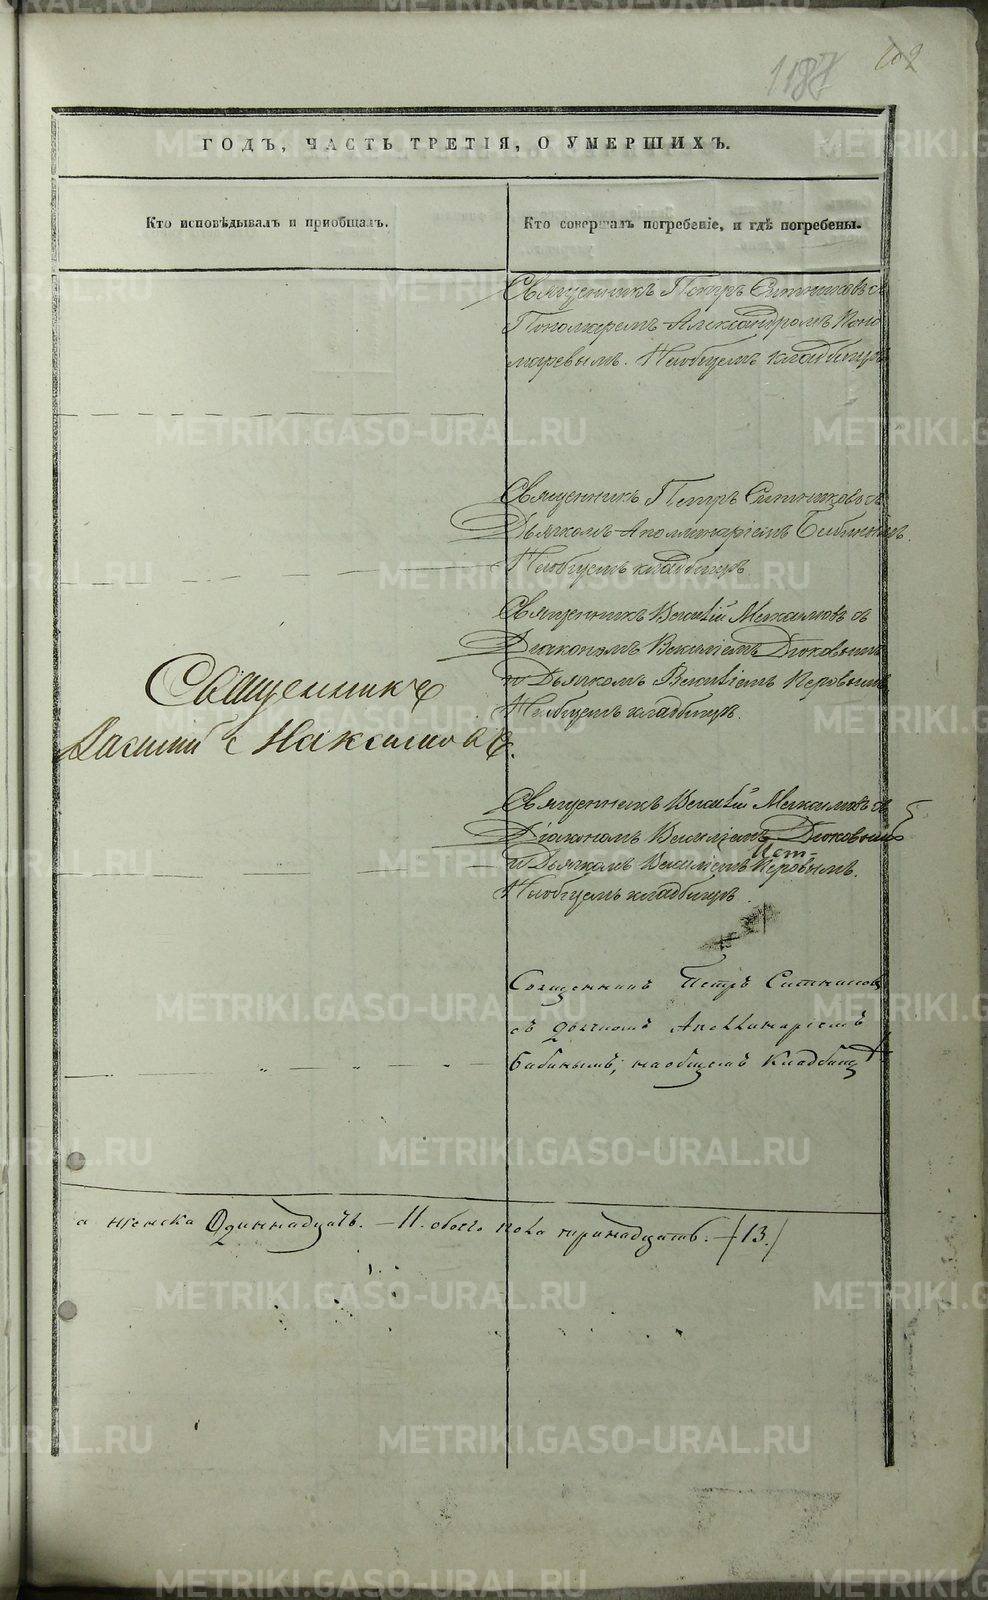 1187
102
ГОДЪ, ЧАСТЬ ТРЕТІЯ, О УМЕРШИХЪ.
Кто исповѣдывалъ и пріобщалъ.
Кто совершалъ погребеніе, и гдѣ погребены.
Священникъ Петръ Ситниковъ съ
Пономаремъ Александромъ Поно
маревымъ. На общемъ кладбищѣ
Священникъ Петръ Ситниковъ съ
Дьячкомъ Аполлинаріемъ Бабинымъ.
На общемъ кладбищѣ
Священникъ Василій Максимовъ съ
Діакономъ Василіемъ
и Дьячкомъ Василіемъ
На общемъ кладбищѣ.
Священникъ
Василій Максимовъ.
Священникъ Василій Максимовъ съ
Діакономъ Василіемъ
и Дьячкомъ Василіемъ
На общемъ кладбищѣ.
Священникъ Петръ Ситниковъ
съ дьячкомъ Аполлинаріемъ
Бабинымъ, на общемъ Кладбищѣ
а женска Одиннадцать. – 11. обоего пола тринадцать. – /13./
METRIKI.GASO-URAL.RU